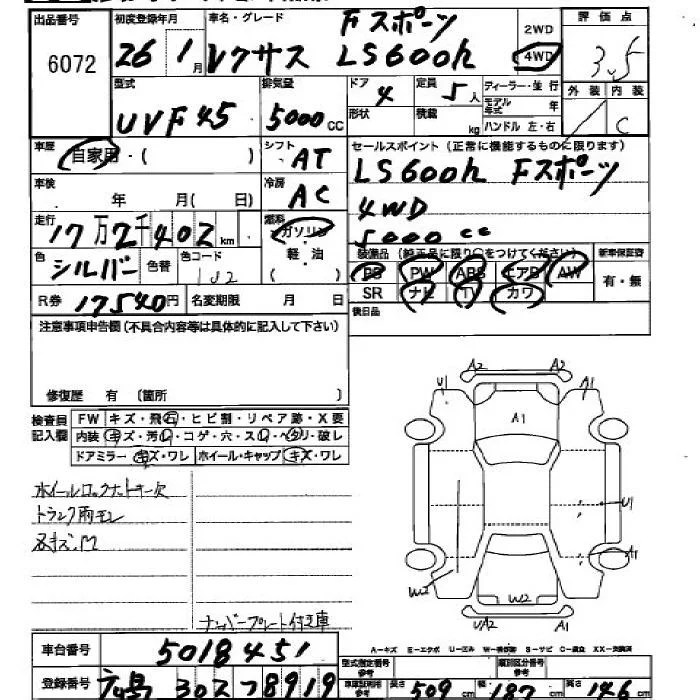 出品番号 初度登録年月 車名・グレード Fスポーツ 2WD 評価点
6072 26 1月 レクサス LS600h 4WD 3.5
型式 排気量 ドア 4 定員 5人 ディーラー・並行 外装 内装
UVF45 5000cc 形状 積載 kg モデル年式 年 C
ハンドル 左・右
車歴 自家用・( ) シフト AT セールスポイント(正常に機能するものに限ります)
車検 年 月( 日) 冷房 AC LS600h Fスポーツ
4WD
走行 17万2千402km 燃料 ガソリン・軽・油 5000cc
色 シルバー 色替 色コード 1J2 装備品(純正品に限り○をつけてください) 新車保証書
PS PW ABS エアB AW 有・無
R券 17540円 名変期限 月 日 SR ナビ TV カワ
注意事項申告欄(不具合内容等は具体的に記入して下さい) 後日品
修復歴 有 〔箇所 〕
検査員記入欄 FW キズ・飛石・ヒビ割・リペア跡・X要
内装 キズ・汚レ・コゲ・穴・スレ・ヘタリ・破レ
ドアミラー キズ・ワレ ホイール・キャップ キズ・ワレ
A2 A2
U1 A1
A1
ホイールロックナットキー欠
トランク雨モレ
U1
A1
W2 W2
UA2 A1
ナンバープレート付き車
A-キズ E-エクボ U-凹ミ W-補修跡 S-サビ C-腐食 XX-交換済
車台番号 5018451 型式指定番号参考 類別区分番号参考
登録番号 広島 302 フ 8919 車庫証明用参考 長さ 509cm 幅 187cm 高さ 146cm